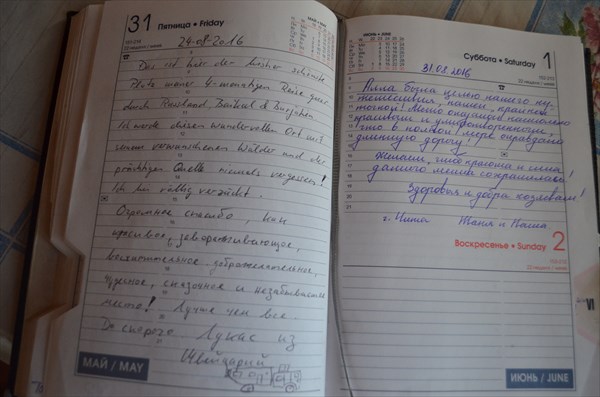 31 Пятница • Friday
МАЙ • MAY
24-08-2016
Das ist hier der bisher schönste
Platz meiner 4-monatigen Reise quer
durch Russland, Baikal &
Ich werde diesen wundervollen Ort mit
seinen verwunschenen Wälder und der
prächtigen Quelle niemals vergessen!
Ich bin völlig verzückt.
Огромное спасибо,
красивое, завораживающее,
восхитительное, доброжелательное,
чудесное, сказочное и незабываемое
место! Лучше чем все.
До скорого Лукас из
Швейцарий
МАЙ / MAY
ИЮНЬ • JUNE
Суббота • Saturday 1
31.08.2016
Алла была целью нашего пу-
тешествия, нашей, крайней
точкой! Место оказалось настолько
красивым и умиротворенным,
что в полной мере оправдало
длинную дорогу!
Желаем, чтобы красота и сила
данного места сохранилась!
Здоровья и добра хозяевам!
г. Чита Таня и Паша
Воскресенье • Sunday 2
VI
ИЮНЬ / JUNE